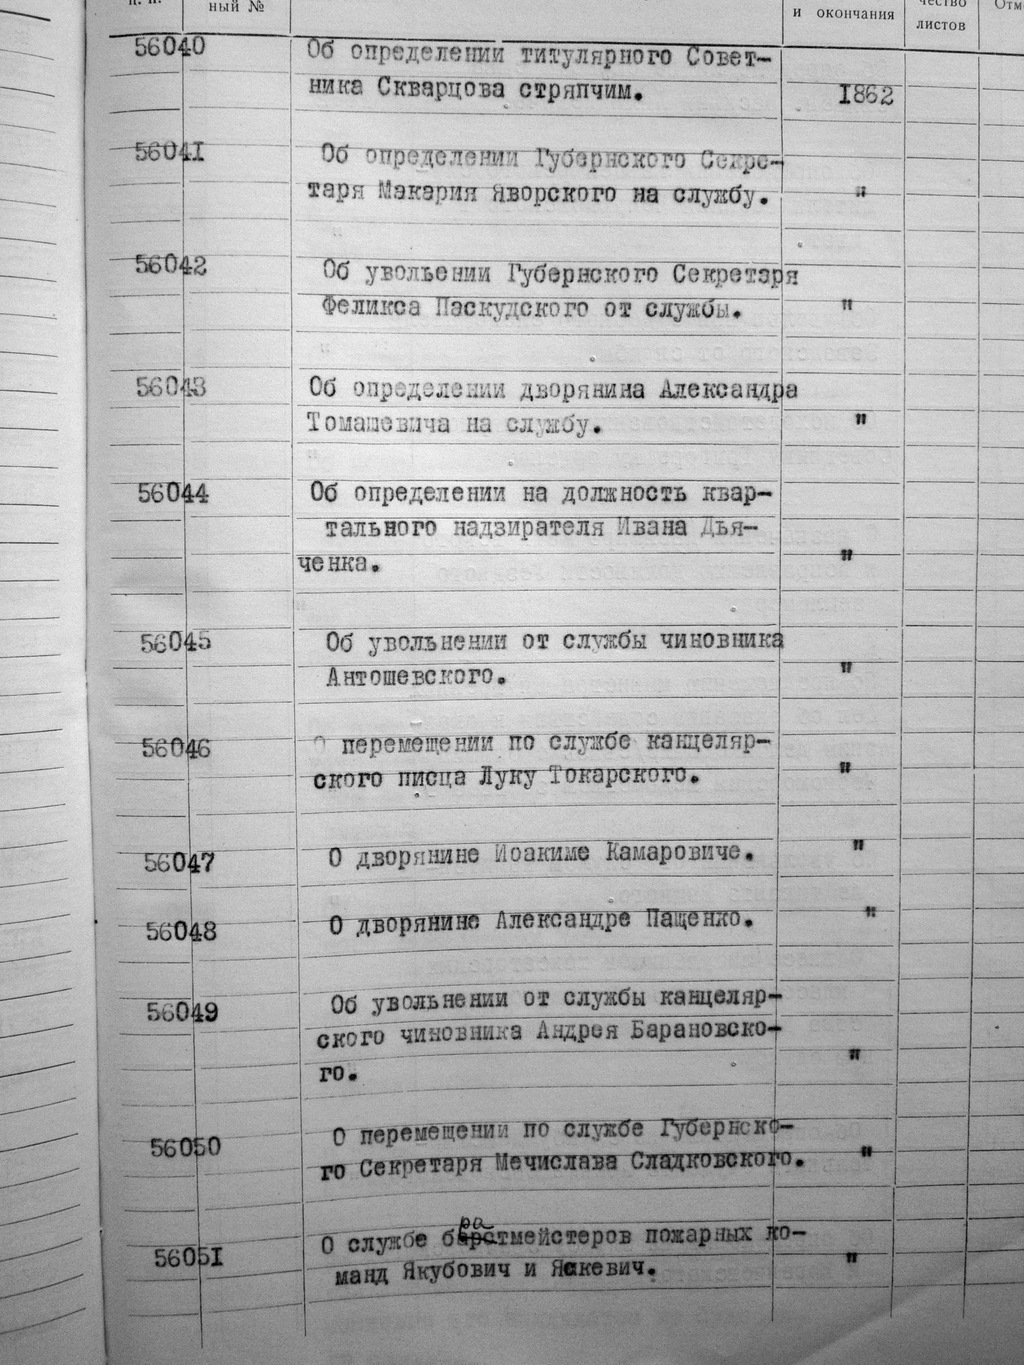 п. п.
ный №
и окончания
чество
листов
Отм
56040
Об определении титулярного Совет-
ника Скварцова стряпчим.
1862
56041
Об определении Губернского Секре-
таря Макария Яворского на службу.
"
56042
Об увольении Губернского Секретаря
Феликса Паскудского от службы.
"
56043
Об определении дворянина Александра
Томашевича на службу.
"
56044
Об определении на должность квар-
тального надзирателя Ивана Дья-
ченка.
"
56045
Об увольнении от службы чиновника
Антошевского.
"
56046
О перемещении по службе канцеляр-
ского писца Луку Токарского.
"
56047
О дворянине Иоакиме Камаровиче.
"
56048
О дворянине Александре Пащенко.
"
56049
Об увольнении от службы канцеляр-
ского чиновника Андрея Барановско-
го.
"
56050
О перемещении по службе Губернско-
го Секретаря Мечислава Сладковского.
"
56051
ра
О службе барстмейстеров пожарных ко-
манд Якубович и Яскевич.
"